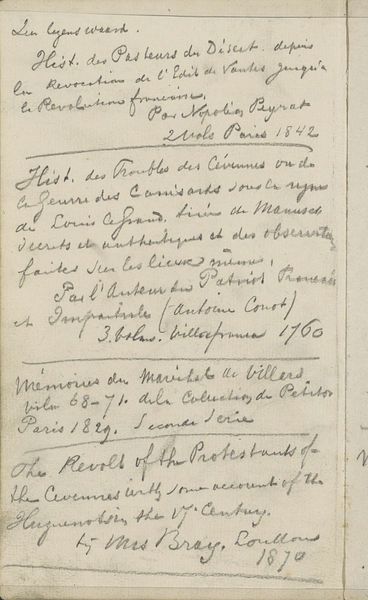 Hist. des Pasteurs du Désert. depuis
la Revocation de l'Edit de Nantes jusqu'à
la Revolution française.
Par Napoléon Peyrat
2 vols Paris 1842
Hist. des Troubles des Cévennes ou de
la Guerre des Camisards sous le regne
de Louis le Grand, tirée de Manuscts
secrets et authentiques et des observatns
faites sur les lieux mêmes,
Par l'Auteur du Patriot Francais
et Impartiale (Antoine Court)
3. Vols. Villefranca 1760
Mémoires du Maréchal de Villars
68-71. de la Collection de Petitot
Paris 1829. Seconde Serie
The Revolt of the Protestants of
the Cevennes with some account of the
Huguenots in the 17 Century.
by Mrs Bray. London
1870